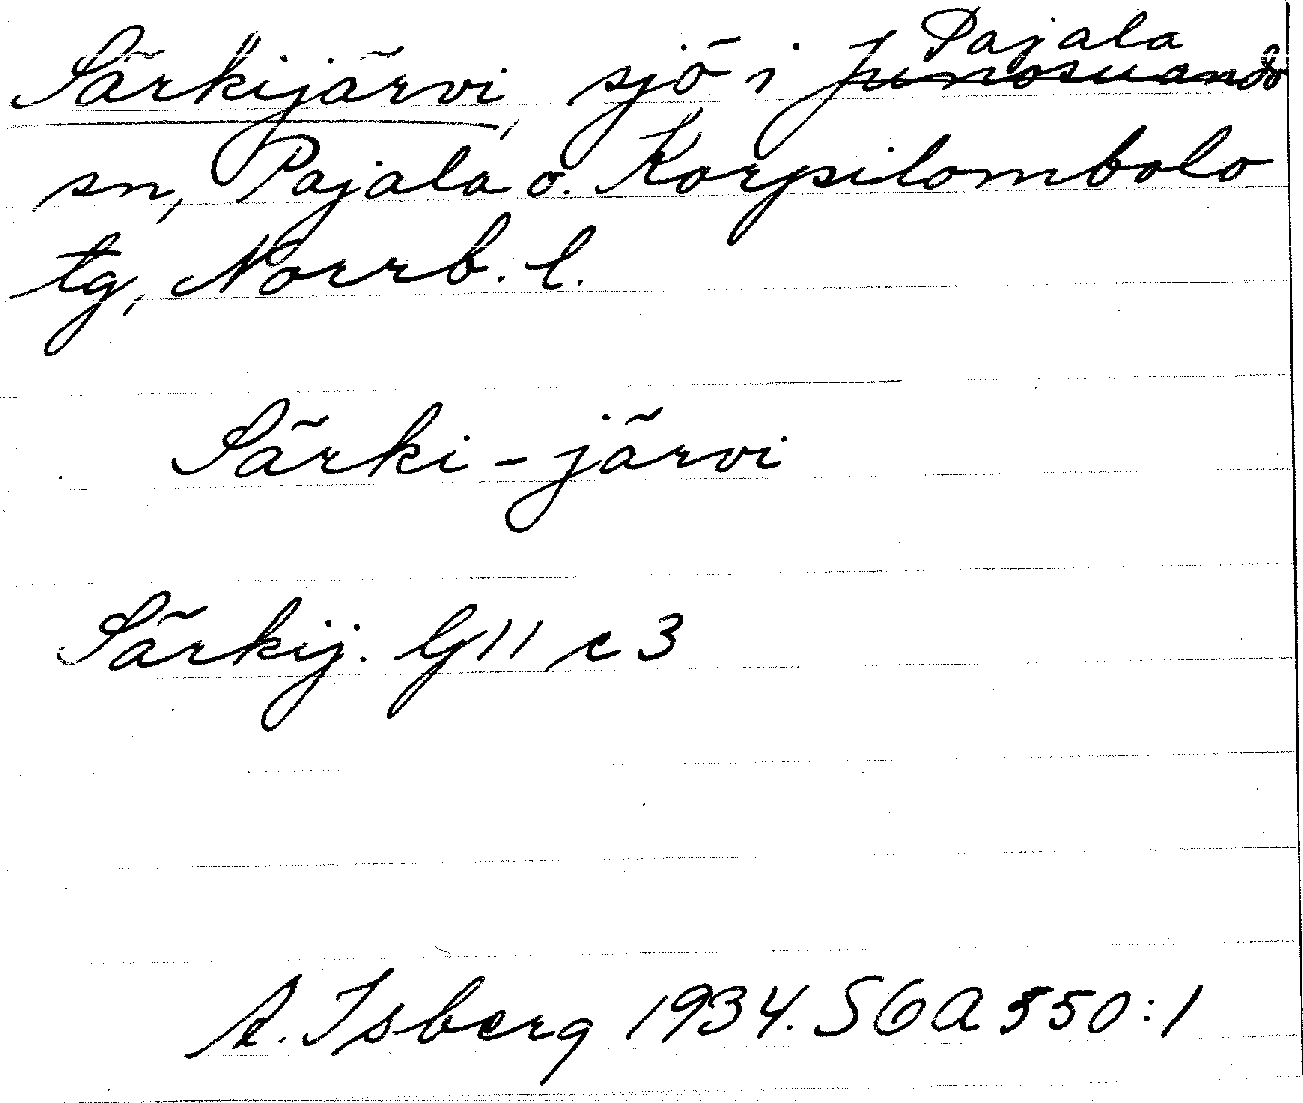 Särkijärvi, sjö i Pajala Junosuando
sn, Pajala o. Korpilombolo
tg, Norrb. l.
Särki-järvi
Särkij. G11 c 3
A. Isberg 1934. SGA 550:1